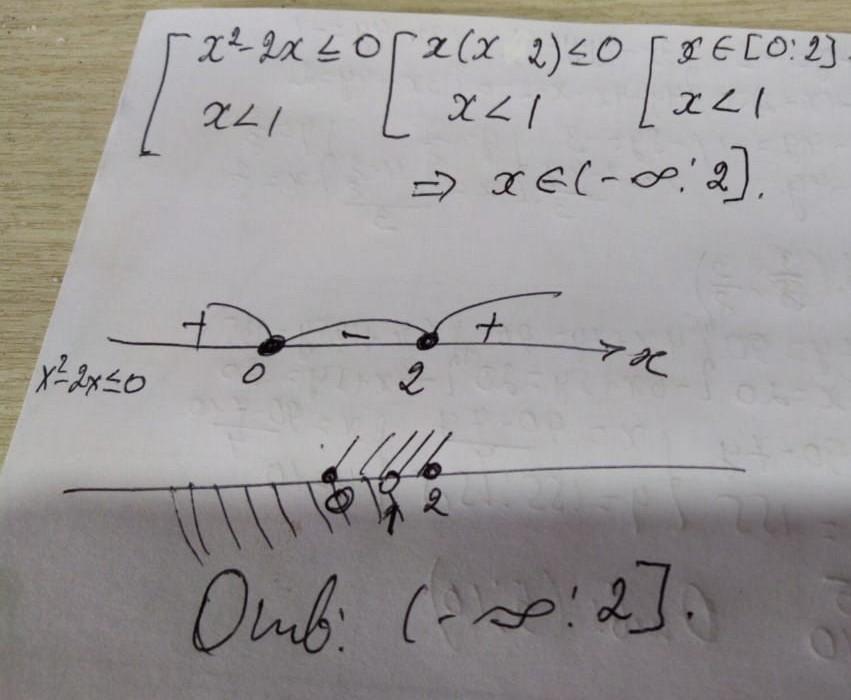 [ x²-2x ≤ 0 [ x(x 2) ≤ 0 [ x ∈ [0:2].
x<1 x<1 x<1
⇒ x ∈ (-∞:2].
+ - +
x²-2x≤0 0 2 x
0 1 2
Отв: (-∞:2].